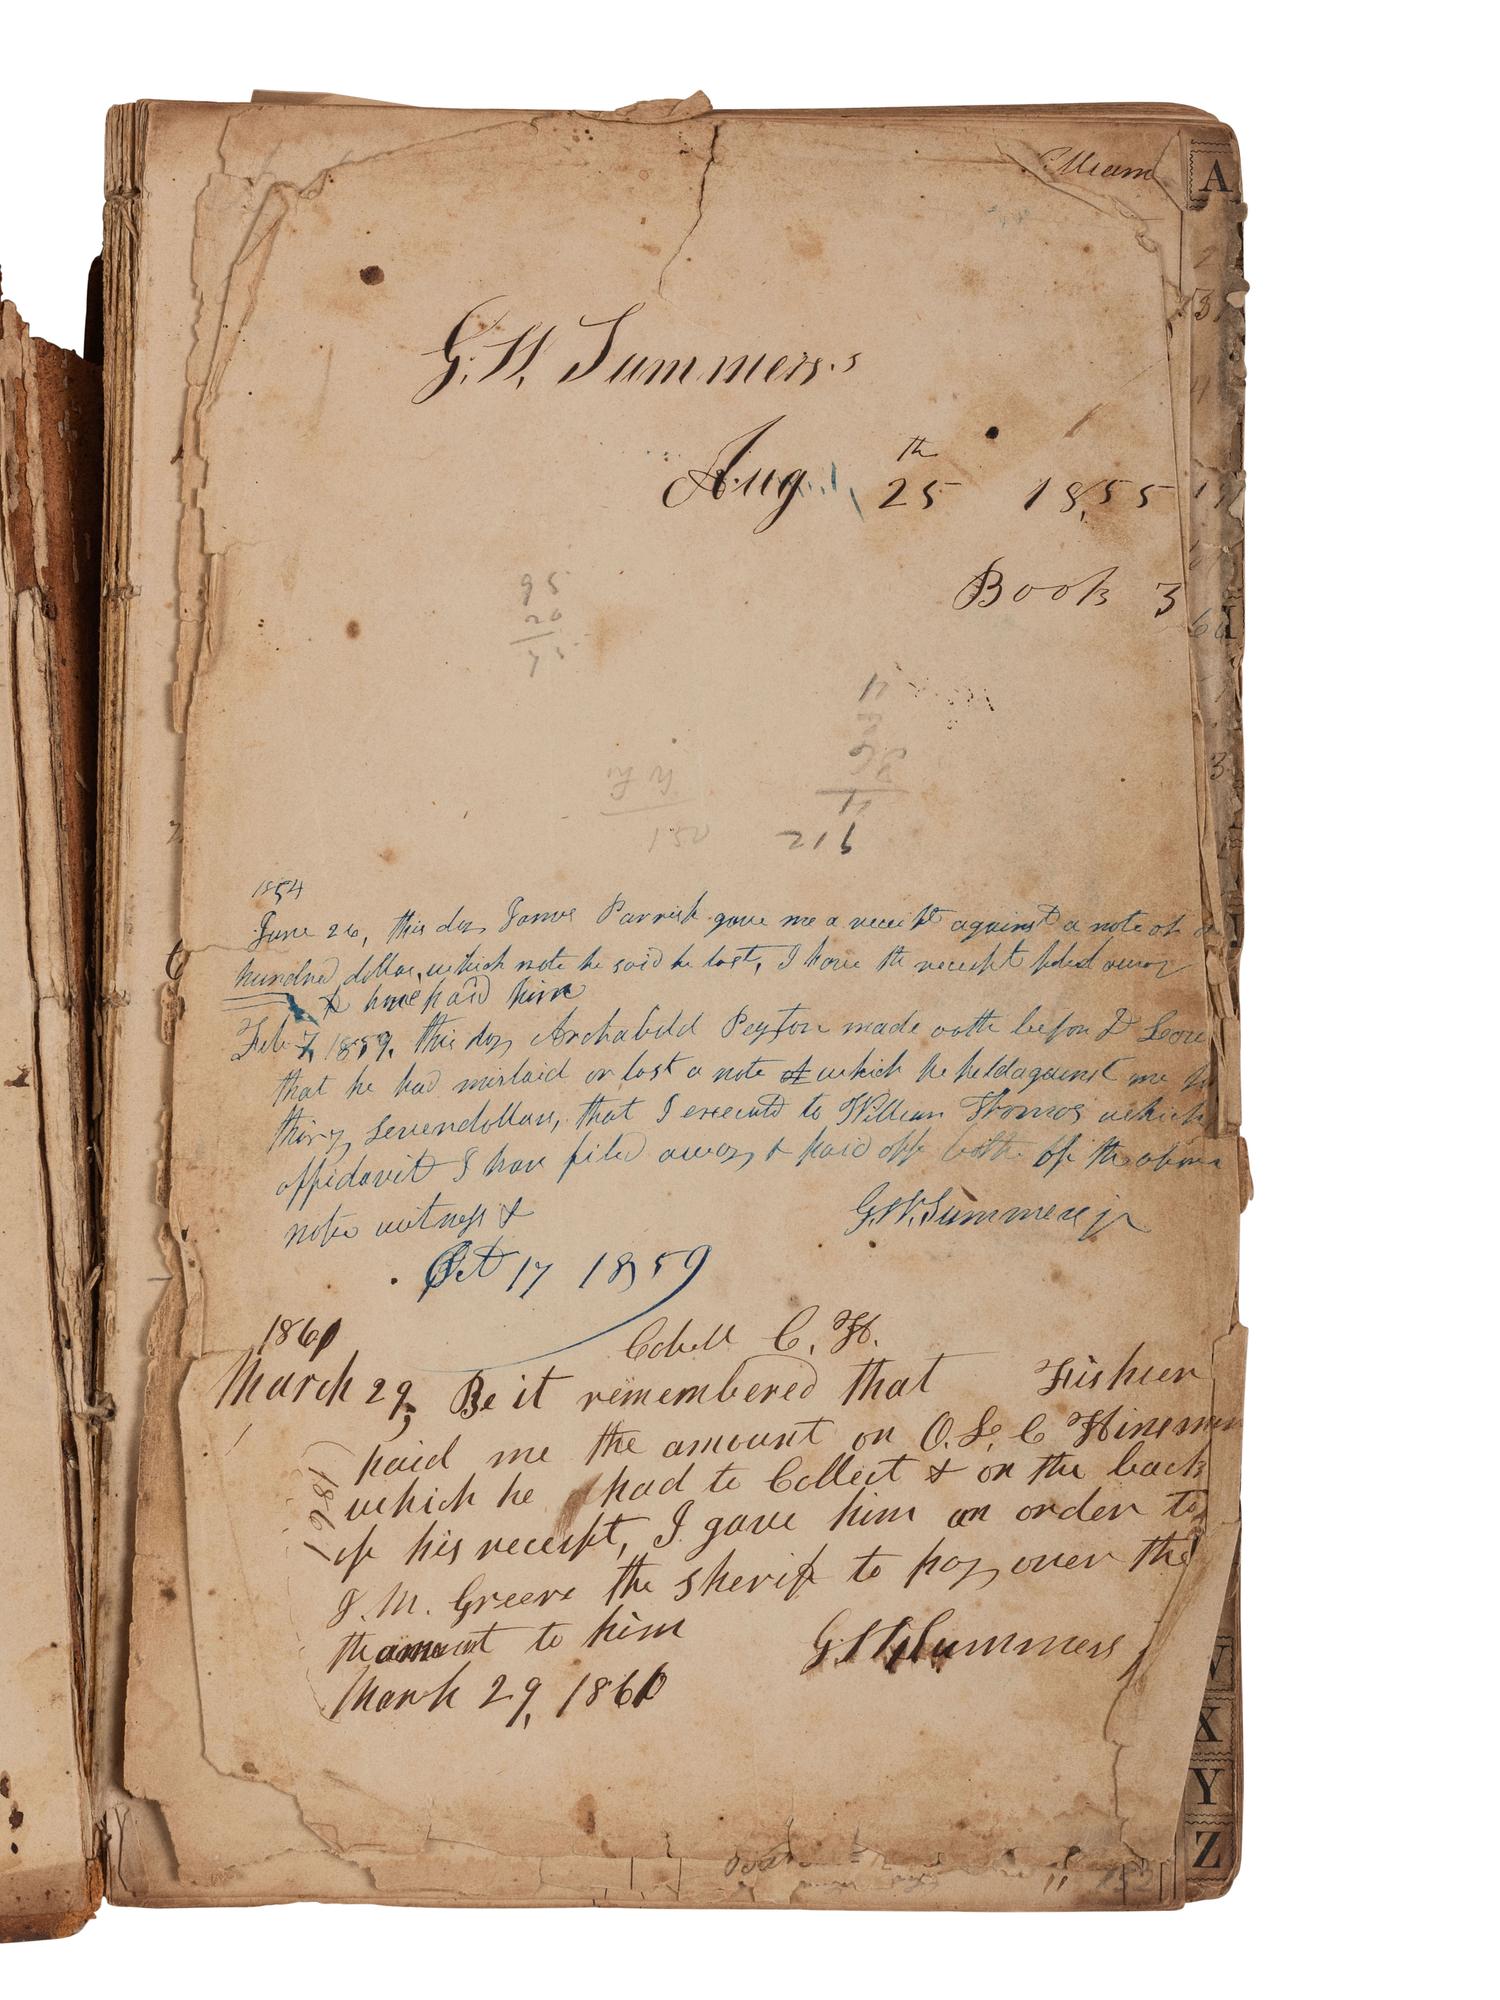 A
G. W. Summers.s
Aug 25th 1855
Book 3
95
20
75
17
150
216
1854
June 26, this day James Parrish gave me a receipt against a note of a
hundred dollar, which note he said he lost, I have the receipt filed away
& have paid him
Feb 7, 1859, this day Archabild Peyton made oath before
that he had mislaid or lost a note of which he held against me
thirty seven dollars, that I executed to William Thomas which
affidavit I have filed away & paid off both of the above
note witness &
G.W. Summers jr
Oct 17 1859
1860
Cabell C. H.
March 29, Be it remembered that
paid me the amount on
which he had to Collect & on the back
of his receipt, I gave him an order to
J. M. Greere the sherif to pay over the
the amount to him
1861
G W Summers j
March 29, 1860
X
Y
Z